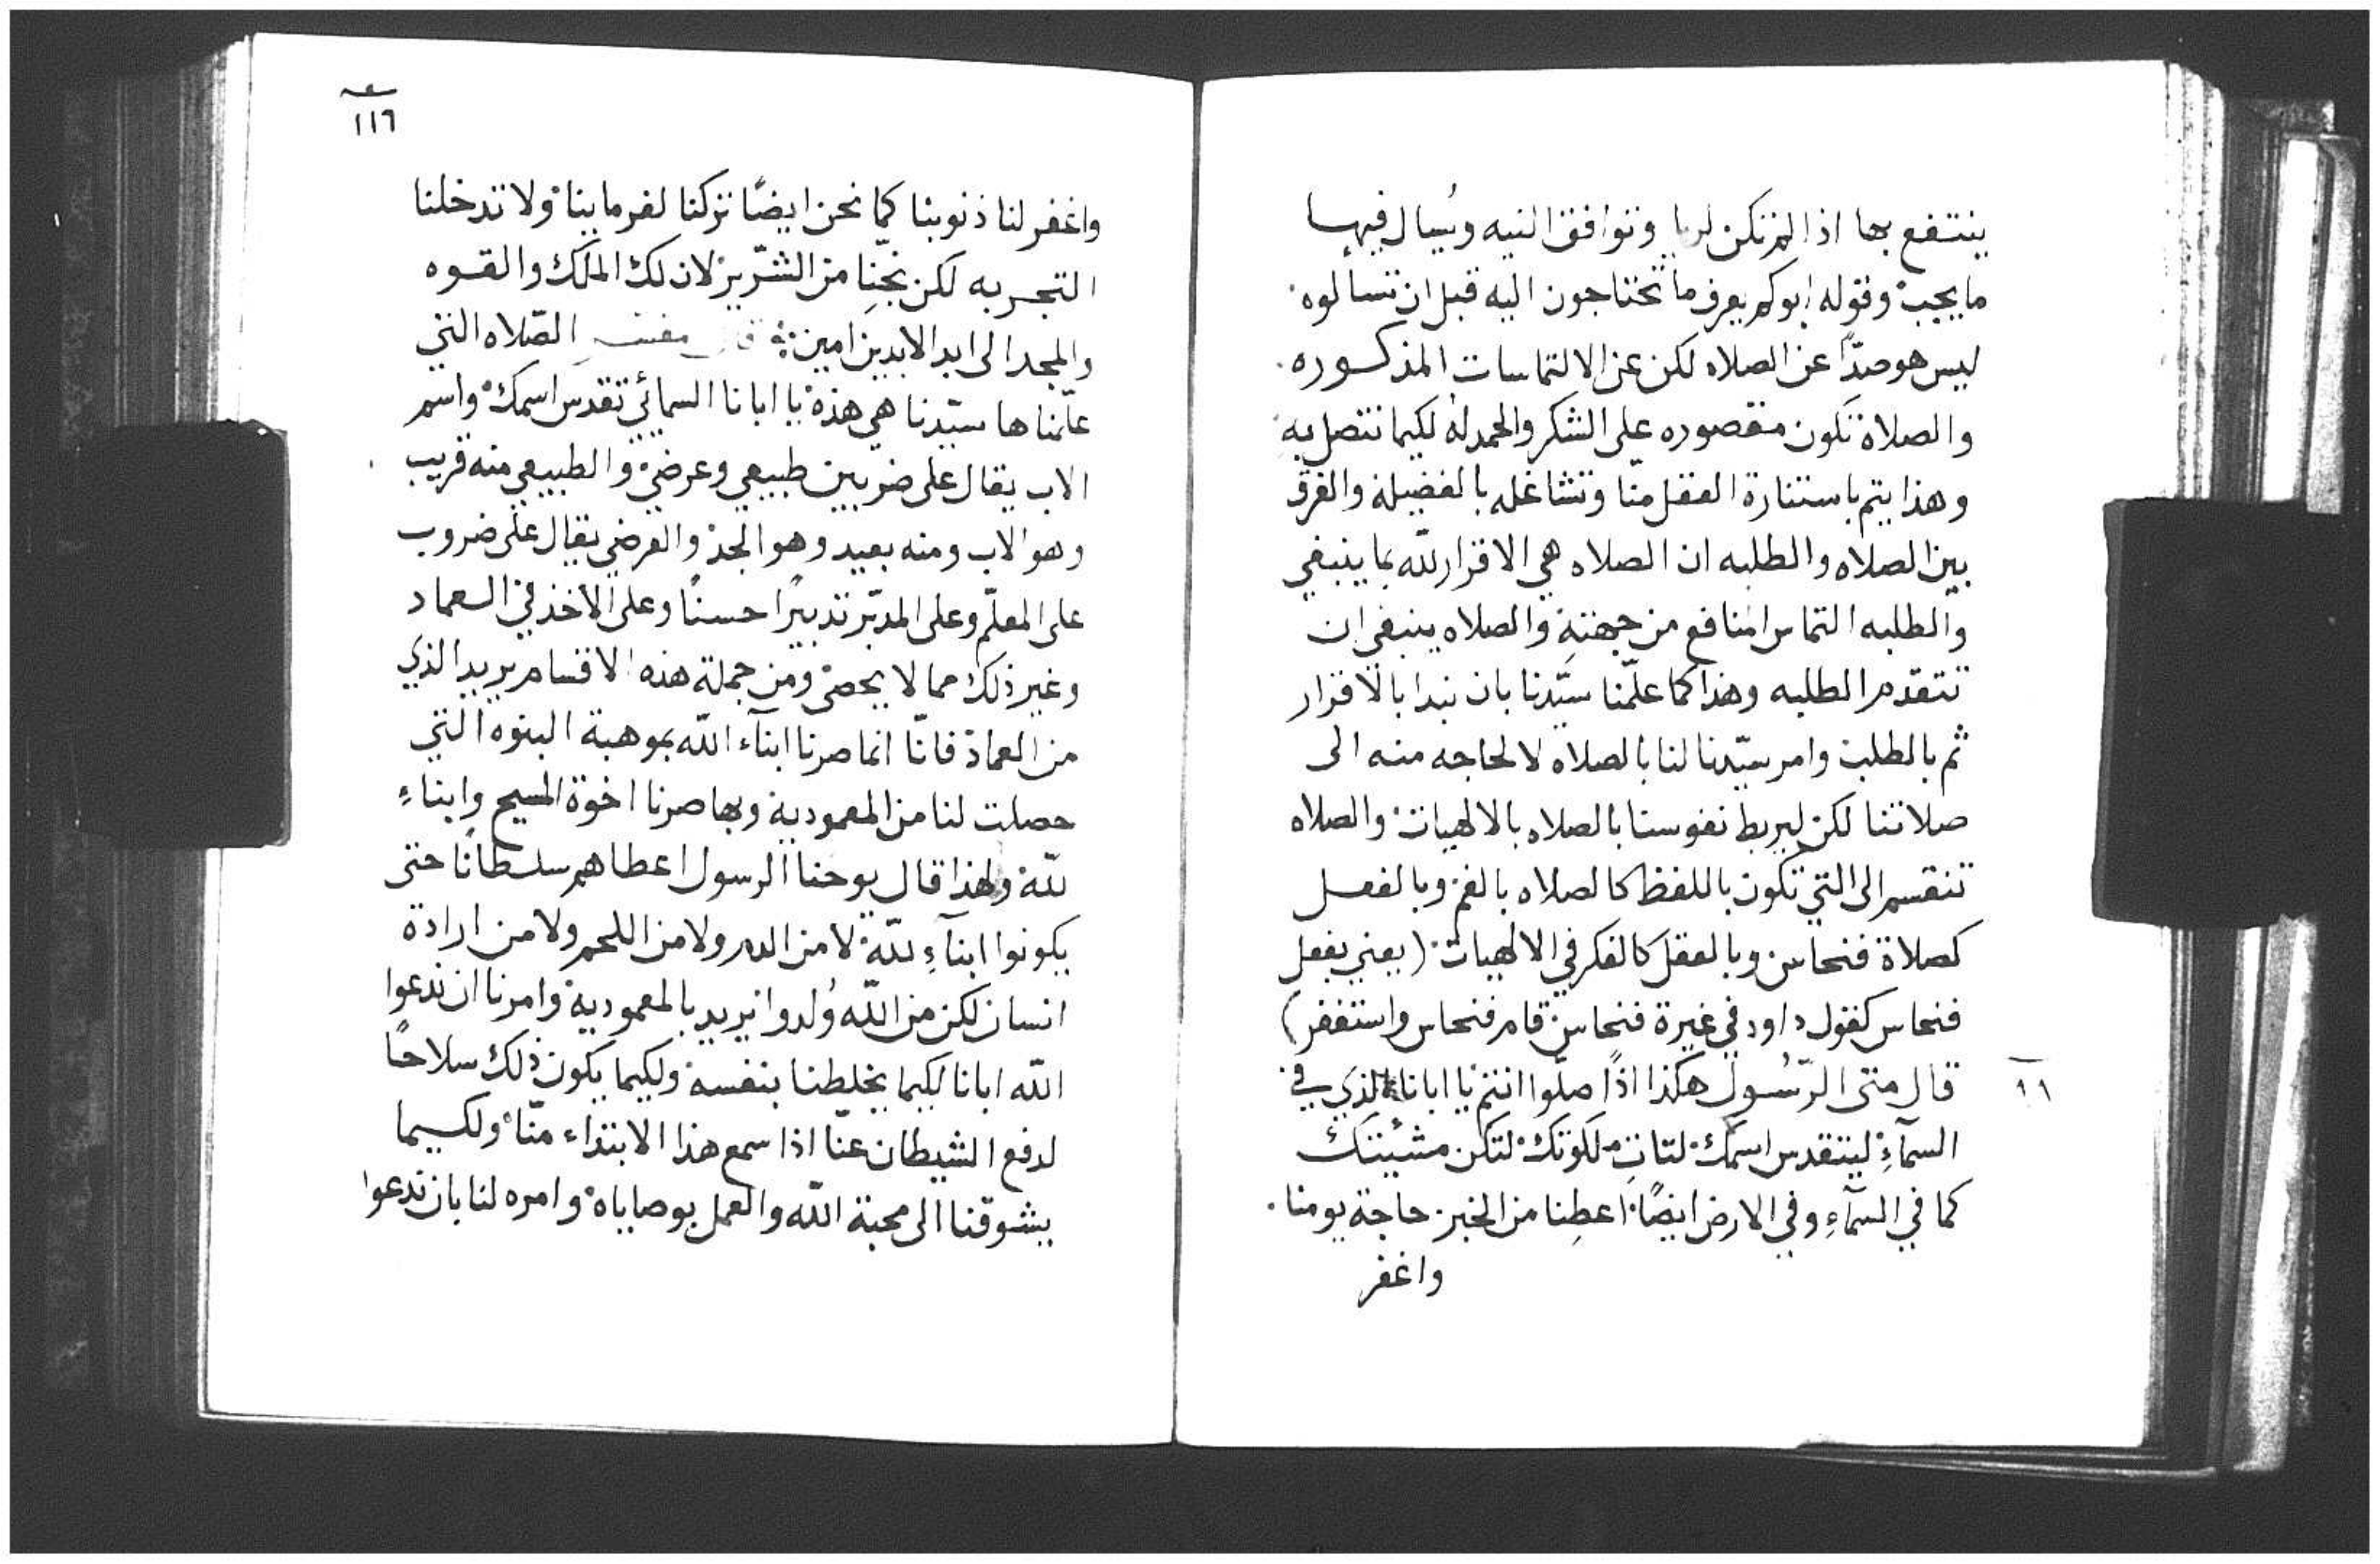 ينتفع بها اذا لم تكن لريا وتوافق النيه ويُسال فيها
ما يجب وقوله ابوكم يعرف ما تحتاجون اليه قبل ان تسالوه
ليس هو صدًا عن الصلاه لكن عن الالتماسات المذكوره
والصلاة تكون مقصوره على الشكر والحمد له لكيما نتصل به
وهذا يتم باستنارة العقل منّا وتشاغله بالفضيلة والفرق
بين الصلاه والطلبه ان الصلاه هي الاقرار للّه بما ينبغي
والطلبه التماس منافع من جهته والصلاه ينبغي ان
تتقدم الطلبه وهذا كما علّمنا سيّدنا بان نبدا بالاقرار
ثم بالطلبة وامر سيّدنا لنا بالصلاه لا لحاجه منه الى
صلاتنا لكن ليربط نفوسنا بالصلاه بالالهيات والصلاه
تنقسم الى التي تكون باللفظ كالصلاه بالفم وبالفعل
كصلاة فنحاس وبالعقل كالفكر في الالهيات (يعني بفعل
فنحاس كقول داود في غيرة فنحاس قام فنحاس واستغفر)
١١
قال متى الرّسُول هكذا اذًا صلّوا انتم يا ابانا الذي في
السمآءِ ليتقدس اسمك لتاتِ ملكوتك لتكن مشيئتك
كما في السمآءِ وفي الارض ايضًا اعطِنا من الخبز حاجة يومنا
واغفر
١١٦
واغفر لنا ذنوبنا كما نحن ايضًا تركنا لغرماينا ولا تدخلنا
التجربه لكن نجّنِا من الشرّير لان لك الملك والقوه
والمجد الى ابد الابدين امين قال مفسر الصّلاه التي
علّمناها سيّدنا هي هذه يا ابانا السمائي تقدس اسمك واسم
الاب يقال على ضربين طبيعي وعرضي والطبيعي منه قريب
وهو الاب ومنه بعيد وهو الجد والعرضي يقال على ضروب
على المعلّم وعلى المدبّر تدبيرًا حسنًا وعلى الاخذ في العماد
وغير ذلك مما لا يحصى ومن جملة هذه الاقسام يريد الذي
من العماد فانّا انما صرنا ابنآء اللّه بموهبة البنوه التي
حصلت لنا من المعمودية وبها صرنا اخوة المسيح وابناءِ
للّه ولهذا قال يوحنا الرسول اعطاهم سلطانًا حتى
يكونوا ابنآءِ للّه لا من الدم ولا من اللحم ولا من ارادة
انسان لكن من اللّه وُلدوا يريد بالمعمودية وامرنا ان ندعوا
اللّه ابانا لكيما يخلطنا بنفسه ولكيما يكون ذلك سلاحًا
لدفع الشيطان عنّا اذا سمع هذا الابتداء منّا ولكيما
يشوقنا الى محبة اللّه والعمل بوصاياه وامره لنا بان ندعوا